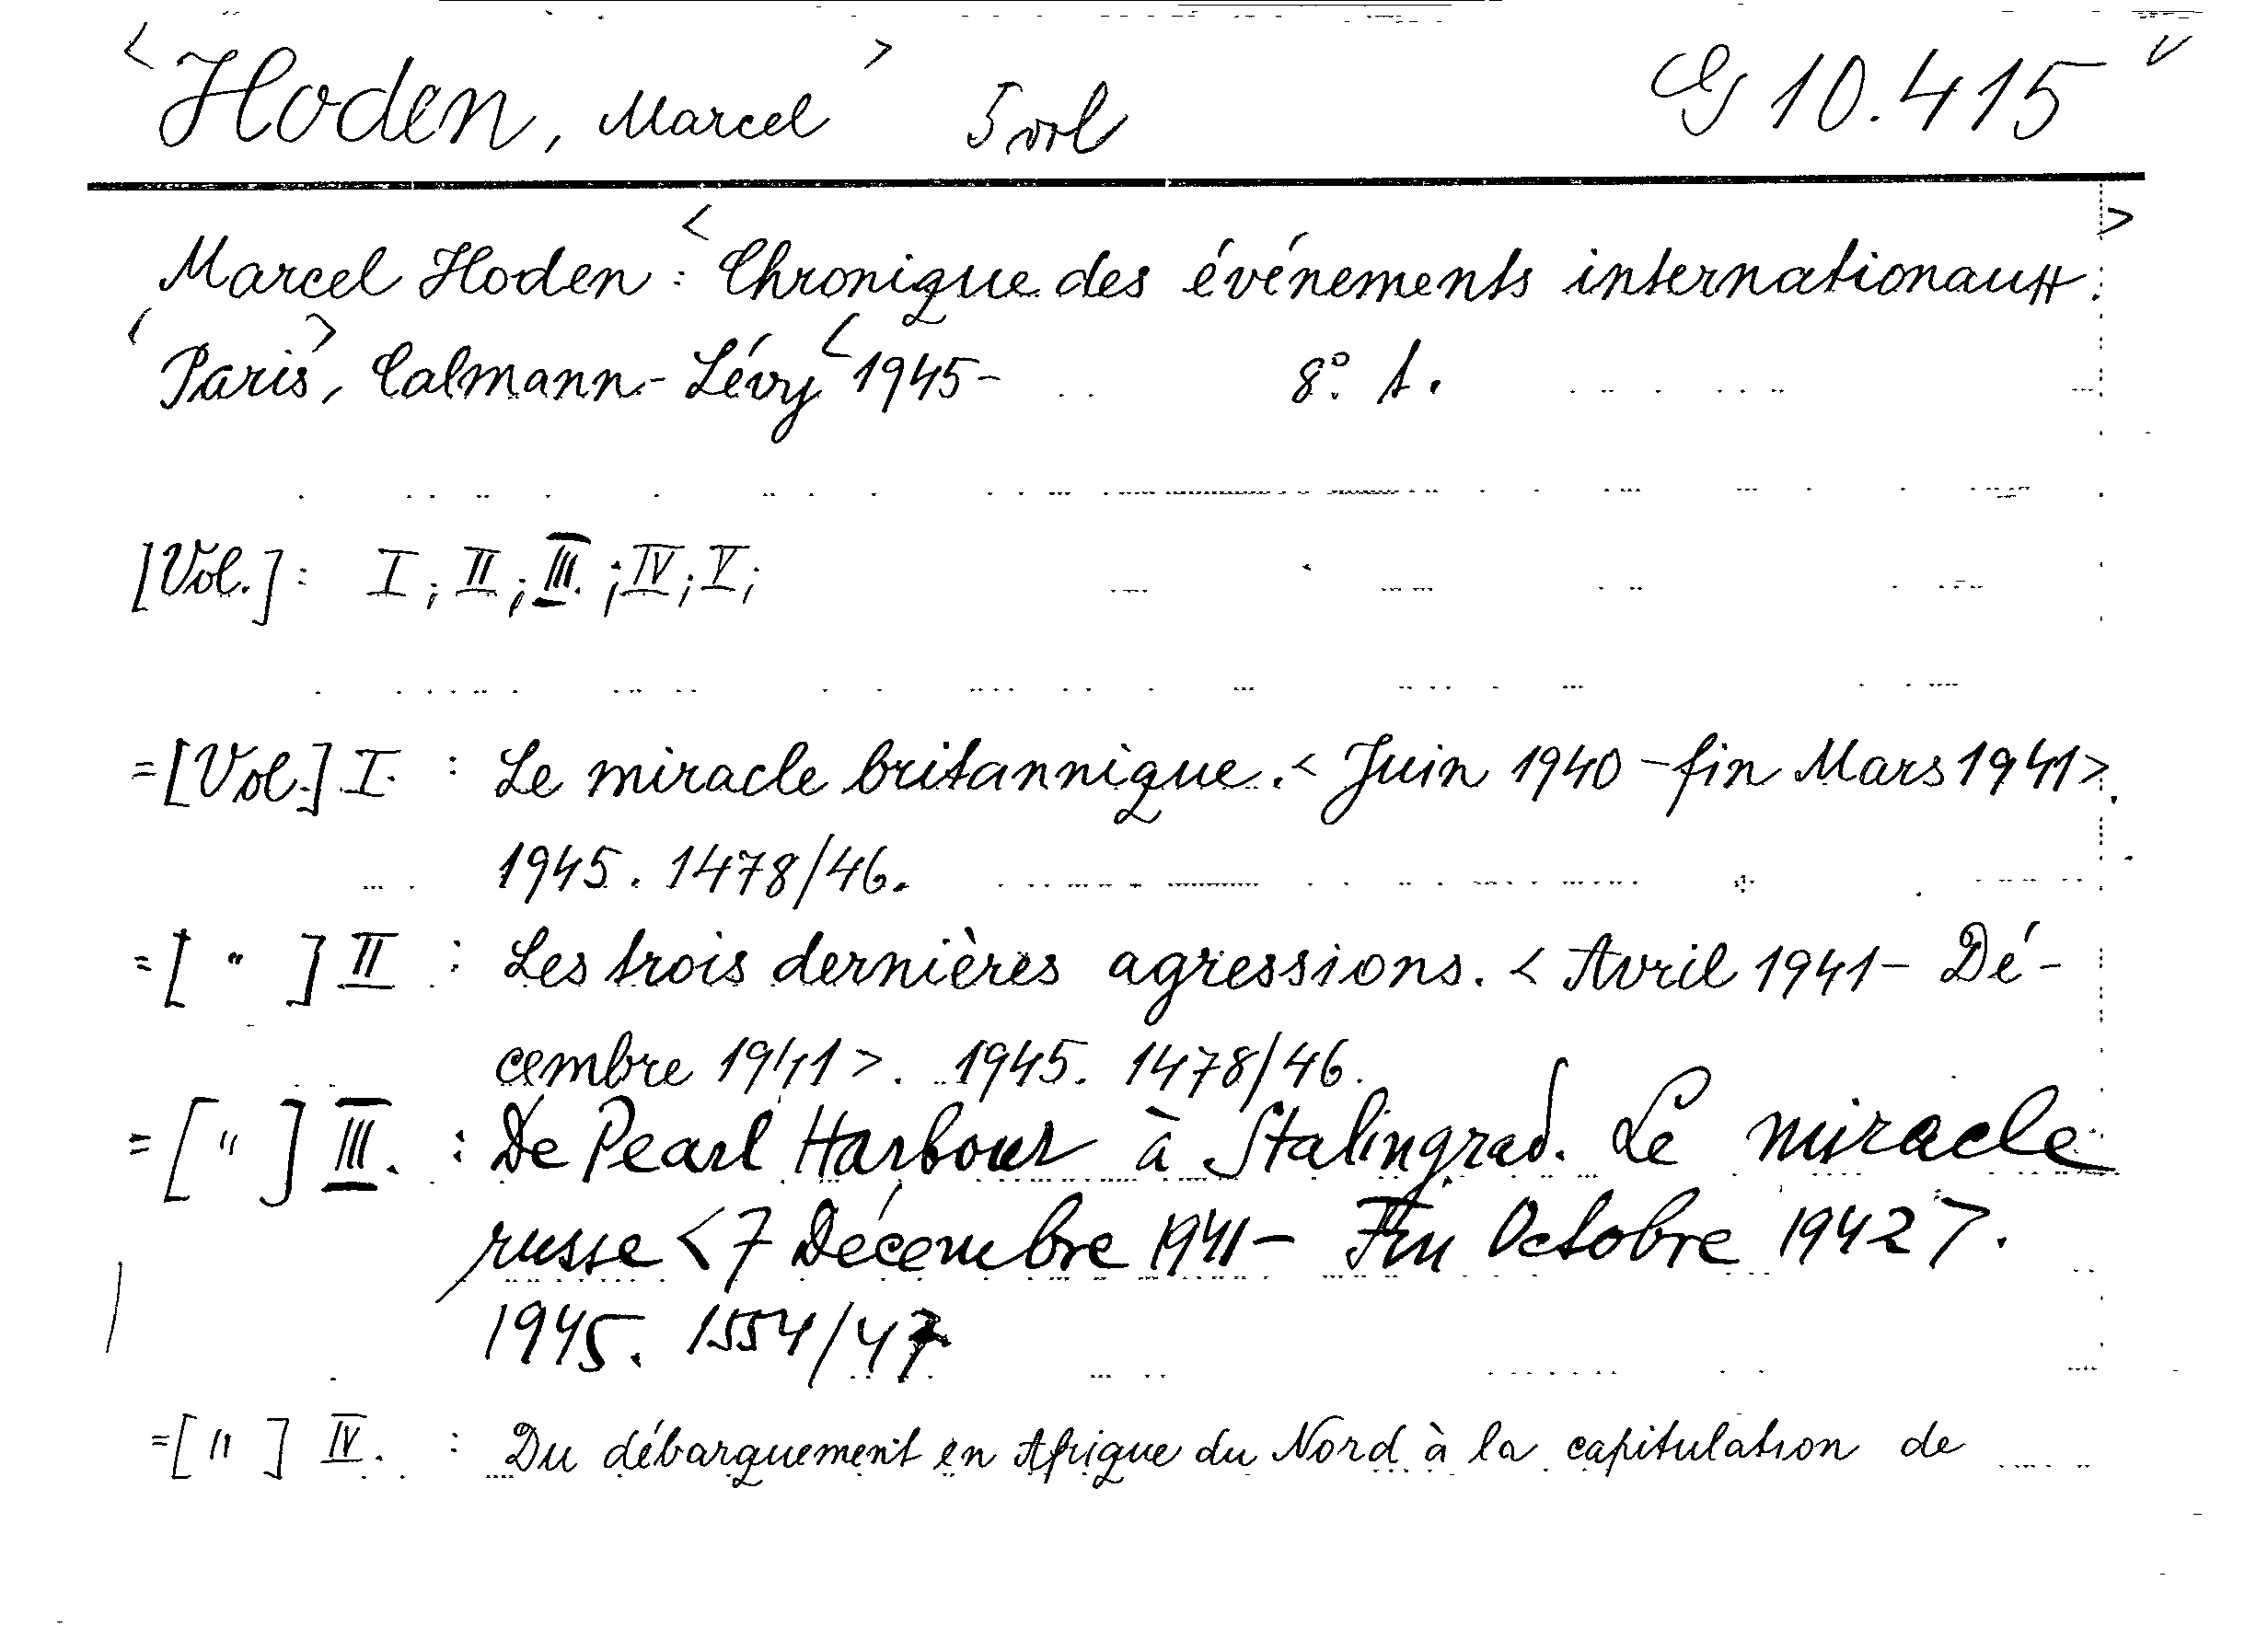 <Hoden, Marcel> 5 vol G 10.415 v
Marcel Hoden: <Chronique des événements internationaux.>
<Paris>, Calmann-Lévy <1945- 8°. A.
[Vol.]: I; II; III.; IV; V;
=[Vol.] I. : Le miracle britannique. < Juin 1940 - fin Mars 1941>.
1945. 1478/46.
=[ " ] II : Les trois dernières agressions. < Avril 1941 - Dé-
cembre 1941>. 1945. 1478/46.
=[ " ] III. : De Pearl Harbour à Stalingrad. Le miracle
russe <7 Décembre 1941- Fin Octobre 1942>.
1945. 1554/47
=[ " ] IV. : Du débarquement en Afrique du Nord à la capitulation de